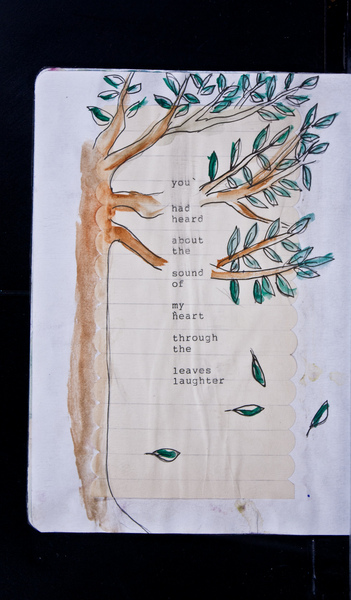 you'
had
heard
about
the
sound
of
my
heart
through
the
leaves
laughter